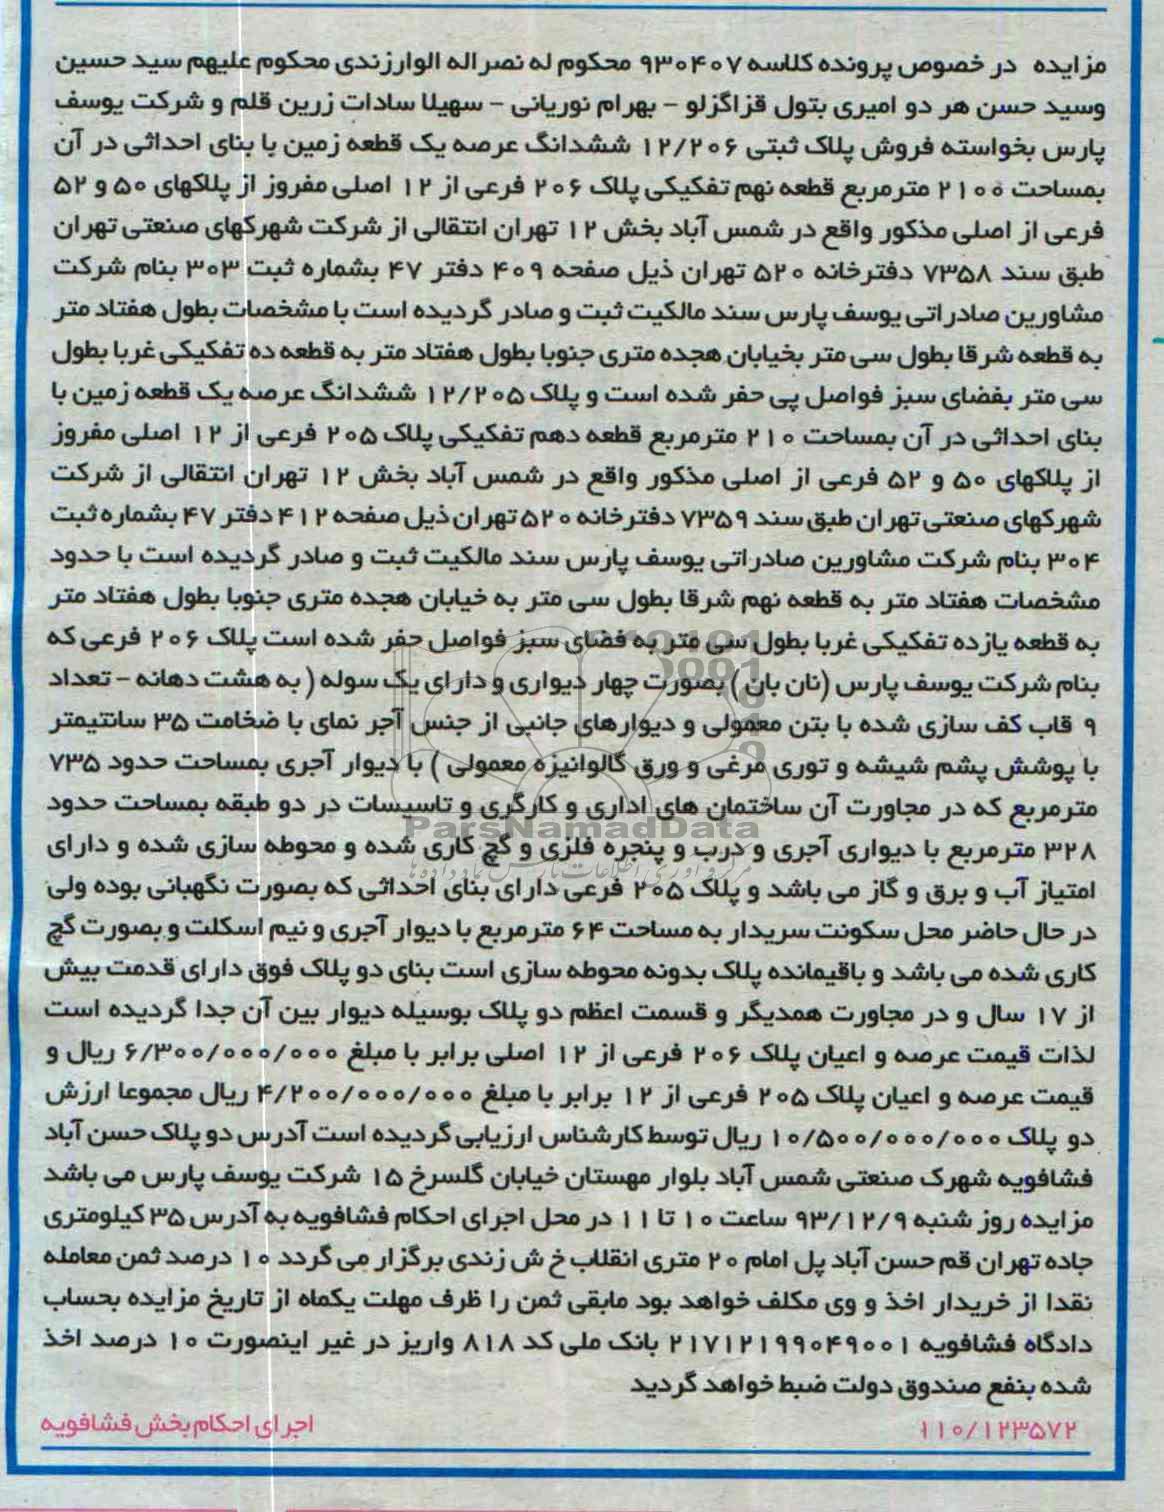 مزایده در خصوص پرونده کلاسه ۹۳۰۴۰۷ محکوم له نصراله الوارزندی محکوم علیهم سید حسین
وسید حسن هر دو امیری بتول قزاگزلو - بهرام نوریانی - سهیلا سادات زرین قلم و شرکت یوسف
پارس بخواسته فروش پلاک ثبتی ۱۲/۲۰۶ ششدانگ عرصه یک قطعه زمین با بنای احداثی در آن
بمساحت ۲۱۰۰ مترمربع قطعه نهم تفکیکی پلاک ۲۰۶ فرعی از ۱۲ اصلی مفروز از پلاکهای ۵۰ و ۵۲
فرعی از اصلی مذکور واقع در شمس آباد بخش ۱۲ تهران انتقالی از شرکت شهرکهای صنعتی تهران
طبق سند ۷۳۵۸ دفترخانه ۵۲۰ تهران ذیل صفحه ۴۰۹ دفتر ۴۷ بشماره ثبت ۳۰۳ بنام شرکت
مشاورین صادراتی یوسف پارس سند مالکیت ثبت و صادر گردیده است با مشخصات بطول هفتاد متر
به قطعه شرقا بطول سی متر بخیابان هجده متری جنوبا بطول هفتاد متر به قطعه ده تفکیکی غربا بطول
سی متر بفضای سبز فواصل پی حفر شده است و پلاک ۱۲/۲۰۵ ششدانگ عرصه یک قطعه زمین با
بنای احداثی در آن بمساحت ۲۱۰ مترمربع قطعه دهم تفکیکی پلاک ۲۰۵ فرعی از ۱۲ اصلی مفروز
از پلاکهای ۵۰ و ۵۲ فرعی از اصلی مذکور واقع در شمس آباد بخش ۱۲ تهران انتقالی از شرکت
شهرکهای صنعتی تهران طبق سند ۷۳۵۹ دفترخانه ۵۲۰ تهران ذیل صفحه ۴۱۲ دفتر ۴۷ بشماره ثبت
۳۰۴ بنام شرکت مشاورین صادراتی یوسف پارس سند مالکیت ثبت و صادر گردیده است با حدود
مشخصات هفتاد متر به قطعه نهم شرقا بطول سی متر به خیابان هجده متری جنوبا بطول هفتاد متر
به قطعه یازده تفکیکی غربا بطول سی متر به فضای سبز فواصل حفر شده است پلاک ۲۰۶ فرعی که
بنام شرکت یوسف پارس (نان بان ) بصورت چهار دیواری و دارای یک سوله ( به هشت دهانه - تعداد
۹ قاب کف سازی شده با بتن معمولی و دیوارهای جانبی از جنس آجر نمای با ضخامت ۳۵ سانتیمتر
با پوشش پشم شیشه و توری مرغی و ورق گالوانیزه معمولی ) با دیوار آجری بمساحت حدود ۷۳۵
مترمربع که در مجاورت آن ساختمان های اداری و کارگری و تاسیسات در دو طبقه بمساحت حدود
ParsNamadData
۳۲۸ مترمربع با دیواری آجری و درب و پنجره فلزی و گچ کاری شده و محوطه سازی شده و دارای
امتیاز آب و برق و گاز می باشد و پلاک ۲۰۵ فرعی دارای بنای احداثی که بصورت نگهبانی بوده ولی
در حال حاضر محل سکونت سریدار به مساحت ۶۴ مترمربع با دیوار آجری و نیم اسکلت و بصورت گچ
کاری شده می باشد و باقیمانده پلاک بدونه محوطه سازی است بنای دو پلاک فوق دارای قدمت بیش
از ۱۷ سال و در مجاورت همدیگر و قسمت اعظم دو پلاک بوسیله دیوار بین آن جدا گردیده است
لذات قیمت عرصه و اعیان پلاک ۲۰۶ فرعی از ۱۲ اصلی برابر با مبلغ ۶/۳۰۰/۰۰۰/۰۰۰ ریال و
قیمت عرصه و اعیان پلاک ۲۰۵ فرعی از ۱۲ برابر با مبلغ ۴/۲۰۰/۰۰۰/۰۰۰ ریال مجموعا ارزش
دو پلاک ۱۰/۵۰۰/۰۰۰/۰۰۰ ریال توسط کارشناس ارزیابی گردیده است آدرس دو پلاک حسن آباد
فشافویه شهرک صنعتی شمس آباد بلوار مهستان خیابان گلسرخ ۱۵ شرکت یوسف پارس می باشد
مزایده روز شنبه ۹۳/۱۲/۹ ساعت ۱۰ تا ۱۱ در محل اجرای احکام فشافویه به آدرس ۳۵ کیلومتری
جاده تهران قم حسن آباد پل امام ۲۰ متری انقلاب خ ش زندی برگزار می گردد ۱۰ درصد ثمن معامله
نقدا از خریدار اخذ و وی مکلف خواهد بود مابقی ثمن را ظرف مهلت یکماه از تاریخ مزایده بحساب
دادگاه فشافویه ۲۱۷۱۲۱۹۹۰۴۹۰۰۱ بانک ملی کد ۸۱۸ واریز در غیر اینصورت ۱۰ درصد اخذ
شده بنفع صندوق دولت ضبط خواهد گردید
۱۱۰/۱۲۳۵۷۲ اجرای احکام بخش فشافویه